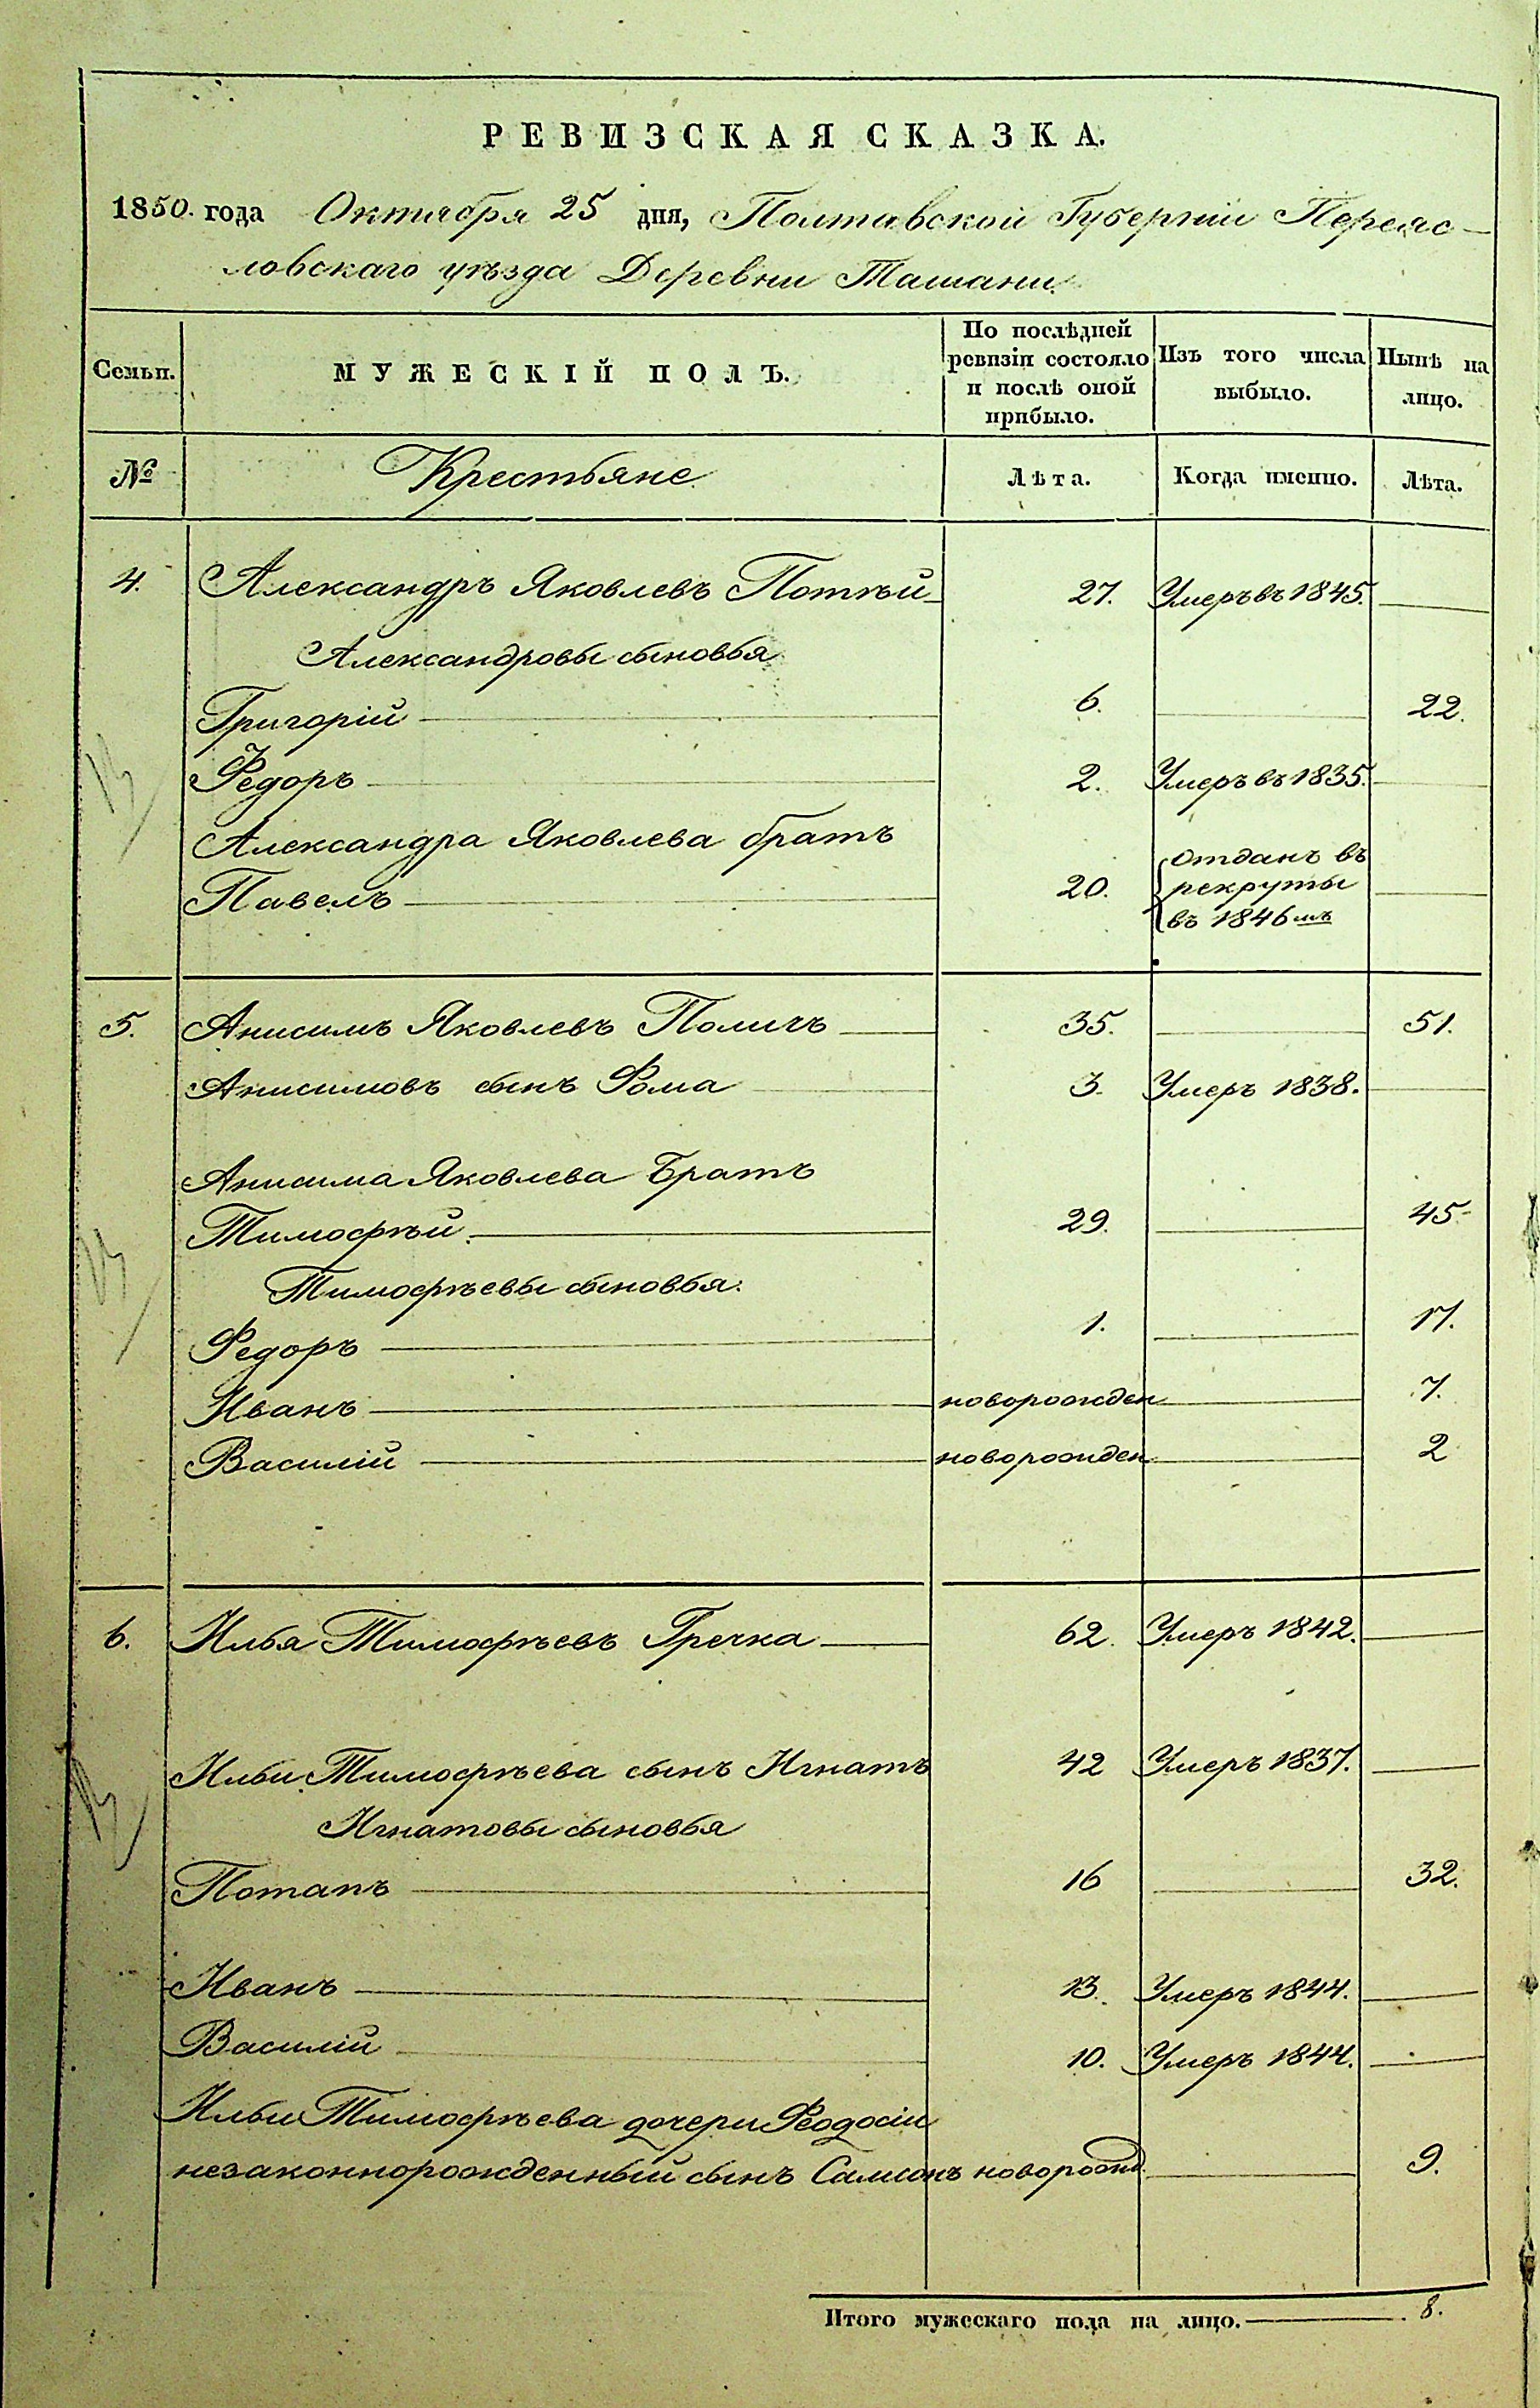 РЕВИЗСКАЯ СКАЗКА.
1850. года Октября 25 дня, Полтавской Губерніи Переяс-
ловскаго уѣзда Деревни Ташани
Семьи. МУЖЕСКІЙ ПОЛЪ. По послѣдней ревизіи состояло и послѣ оной прибыло. Изъ того числа выбыло. Нынѣ на лицо.
№ Крестьяне Лѣта. Когда именно. Лѣта.
4. Александръ Яковлевъ 27. Умеръ въ 1845.
Александровы сыновья
Григорій 6. 22.
Федоръ 2. Умеръ въ 1835.
Александра Яковлева братъ
Павелъ 20. Отданъ въ рекруты въ 1846мъ
5. Анисимъ Яковлевъ 35. 51.
Анисимовъ сынъ Фома 3. Умеръ 1838.
Анисима Яковлева Братъ
Тимофѣй 29. 45
Тимофѣевы сыновья.
Федоръ 1. 17.
Иванъ новорожден 7.
Василій новорожден 2
6. Илья Тимофѣевъ Гречка 62. Умеръ 1842.
Ильи Тимофѣева сынъ Игнатъ 42 Умеръ 1837.
Игнатовы сыновья
Потапъ 16 32.
Иванъ 13. Умеръ 1844.
Василій 10. Умеръ 1844.
Ильи Тимофѣева дочери Феодосіи
незаконнорожденный сынъ Самсонъ новорожд. 9.
Итого мужескаго пола на лицо. 8.